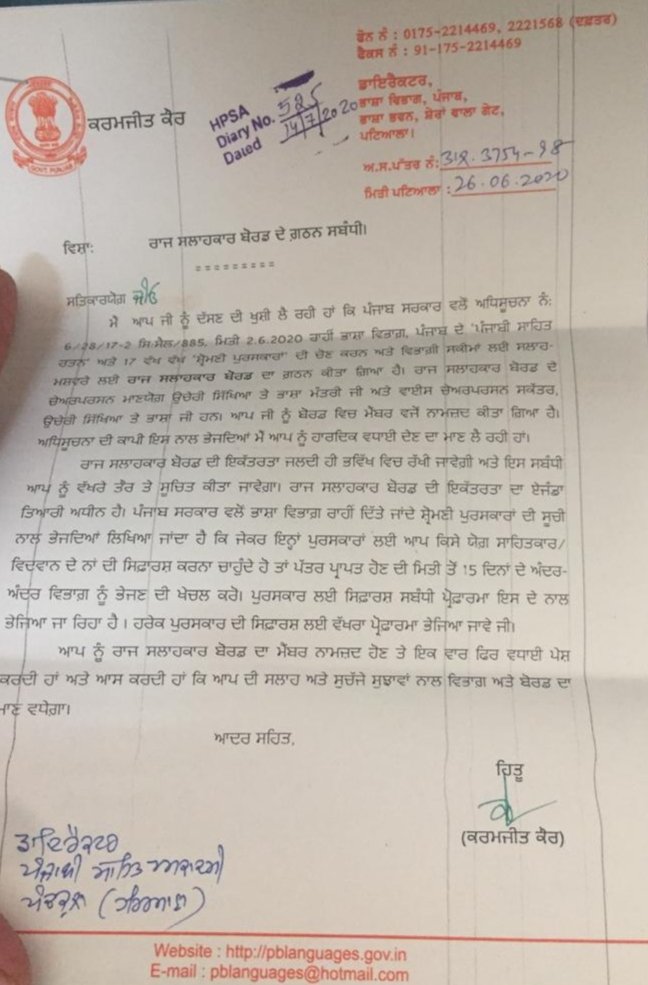 ਫੋਨ ਨੰ : 0175-2214469, 2221568 (ਦਫ਼ਤਰ)
ਫੈਕਸ ਨੰ : 91-175-2214469
ਕਰਮਜੀਤ ਕੌਰ
GOVT. PUNJAB
HPSA
Diary No. 585
Dated 14/7/2020
ਡਾਇਰੈਕਟਰ,
ਭਾਸ਼ਾ ਵਿਭਾਗ, ਪੰਜਾਬ,
ਭਾਸ਼ਾ ਭਵਨ, ਸ਼ੇਰਾਂ ਵਾਲਾ ਗੇਟ,
ਪਟਿਆਲਾ।
ਅ.ਸ.ਪੱਤਰ ਨੰ: 3754-98
ਮਿਤੀ ਪਟਿਆਲਾ : 26.06.2020
ਵਿਸ਼ਾ: ਰਾਜ ਸਲਾਹਕਾਰ ਬੋਰਡ ਦੇ ਗਠਨ ਸਬੰਧੀ।
=========
ਸਤਿਕਾਰਯੋਗ ਜੀਓ
ਮੈਂ ਆਪ ਜੀ ਨੂੰ ਦੱਸਣ ਦੀ ਖੁਸ਼ੀ ਲੈ ਰਹੀ ਹਾਂ ਕਿ ਪੰਜਾਬ ਸਰਕਾਰ ਵਲੋਂ ਅਧਿਸੂਚਨਾ ਨੰ:
6/28/17-2 ਸਿ.ਸੈਲ/885, ਮਿਤੀ 2.6.2020 ਰਾਹੀਂ ਭਾਸ਼ਾ ਵਿਭਾਗ, ਪੰਜਾਬ ਦੇ 'ਪੰਜਾਬੀ ਸਾਹਿਤ
ਰਤਨ' ਅਤੇ 17 ਵੱਖ ਵੱਖ 'ਸ਼੍ਰੋਮਣੀ ਪੁਰਸਕਾਰਾਂ' ਦੀ ਚੋਣ ਕਰਨ ਅਤੇ ਵਿਭਾਗੀ ਸਕੀਮਾਂ ਲਈ ਸਲਾਹ-
ਮਸ਼ਵਰੇ ਲਈ ਰਾਜ ਸਲਾਹਕਾਰ ਬੋਰਡ ਦਾ ਗਠਨ ਕੀਤਾ ਗਿਆ ਹੈ। ਰਾਜ ਸਲਾਹਕਾਰ ਬੋਰਡ ਦੇ
ਚੇਅਰਪਰਸਨ ਮਾਣਯੋਗ ਉਚੇਰੀ ਸਿੱਖਿਆ ਤੇ ਭਾਸ਼ਾ ਮੰਤਰੀ ਜੀ ਅਤੇ ਵਾਈਸ ਚੇਅਰਪਰਸਨ ਸਕੱਤਰ,
ਉਚੇਰੀ ਸਿੱਖਿਆ ਤੇ ਭਾਸ਼ਾ ਜੀ ਹਨ। ਆਪ ਜੀ ਨੂੰ ਬੋਰਡ ਵਿਚ ਮੈਂਬਰ ਵਜੋਂ ਨਾਮਜ਼ਦ ਕੀਤਾ ਗਿਆ ਹੈ।
ਅਧਿਸੂਚਨਾ ਦੀ ਕਾਪੀ ਇਸ ਨਾਲ ਭੇਜਦਿਆਂ ਮੈਂ ਆਪ ਨੂੰ ਹਾਰਦਿਕ ਵਧਾਈ ਦੇਣ ਦਾ ਮਾਣ ਲੈ ਰਹੀ ਹਾਂ।
ਰਾਜ ਸਲਾਹਕਾਰ ਬੋਰਡ ਦੀ ਇਕੱਤਰਤਾ ਜਲਦੀ ਹੀ ਭਵਿੱਖ ਵਿਚ ਰੱਖੀ ਜਾਵੇਗੀ ਅਤੇ ਇਸ ਸਬੰਧੀ
ਆਪ ਨੂੰ ਵੱਖਰੇ ਤੌਰ ਤੇ ਸੂਚਿਤ ਕੀਤਾ ਜਾਵੇਗਾ। ਰਾਜ ਸਲਾਹਕਾਰ ਬੋਰਡ ਦੀ ਇਕੱਤਰਤਾ ਦਾ ਏਜੰਡਾ
ਤਿਆਰੀ ਅਧੀਨ ਹੈ। ਪੰਜਾਬ ਸਰਕਾਰ ਵਲੋਂ ਭਾਸ਼ਾ ਵਿਭਾਗ ਰਾਹੀਂ ਦਿੱਤੇ ਜਾਂਦੇ ਸ਼੍ਰੋਮਣੀ ਪੁਰਸਕਾਰਾਂ ਦੀ ਸੂਚੀ
ਨਾਲ ਭੇਜਦਿਆਂ ਲਿਖਿਆ ਜਾਂਦਾ ਹੈ ਕਿ ਜੇਕਰ ਇਨ੍ਹਾਂ ਪੁਰਸਕਾਰਾਂ ਲਈ ਆਪ ਕਿਸੇ ਯੋਗ ਸਾਹਿਤਕਾਰ/
ਵਿਦਵਾਨ ਦੇ ਨਾਂ ਦੀ ਸਿਫ਼ਾਰਸ਼ ਕਰਨਾ ਚਾਹੁੰਦੇ ਹੋ ਤਾਂ ਪੱਤਰ ਪ੍ਰਾਪਤ ਹੋਣ ਦੀ ਮਿਤੀ ਤੋਂ 15 ਦਿਨਾਂ ਦੇ ਅੰਦਰ-
ਅੰਦਰ ਵਿਭਾਗ ਨੂੰ ਭੇਜਣ ਦੀ ਖੇਚਲ ਕਰੋ। ਪੁਰਸਕਾਰ ਲਈ ਸਿਫ਼ਾਰਸ਼ ਸਬੰਧੀ ਪ੍ਰੋਫ਼ਾਰਮਾ ਇਸ ਦੇ ਨਾਲ
ਭੇਜਿਆ ਜਾ ਰਿਹਾ ਹੈ । ਹਰੇਕ ਪੁਰਸਕਾਰ ਦੀ ਸਿਫ਼ਾਰਸ਼ ਲਈ ਵੱਖਰਾ ਪ੍ਰੋਫ਼ਾਰਮਾ ਭੇਜਿਆ ਜਾਵੇ ਜੀ।
ਆਪ ਨੂੰ ਰਾਜ ਸਲਾਹਕਾਰ ਬੋਰਡ ਦਾ ਮੈਂਬਰ ਨਾਮਜ਼ਦ ਹੋਣ ਤੇ ਇਕ ਵਾਰ ਫਿਰ ਵਧਾਈ ਪੇਸ਼
ਕਰਦੀ ਹਾਂ ਅਤੇ ਆਸ ਕਰਦੀ ਹਾਂ ਕਿ ਆਪ ਦੀ ਸਲਾਹ ਅਤੇ ਸੁਚੱਜੇ ਸੁਝਾਵਾਂ ਨਾਲ ਵਿਭਾਗ ਅਤੇ ਬੋਰਡ ਦਾ
ਮਾਣ ਵਧੇਗਾ।
ਆਦਰ ਸਹਿਤ,
ਹਿਤੂ
(ਕਰਮਜੀਤ ਕੌਰ)
ਡਾਇਰੈਕਟਰ
ਪੰਜਾਬੀ ਸਾਹਿਤ ਅਕਾਦਮੀ
ਪੰਚਕੂਲਾ (ਹਰਿਆਣਾ)
Website : http://pblanguages.gov.in
E-mail : pblanguages@hotmail.com